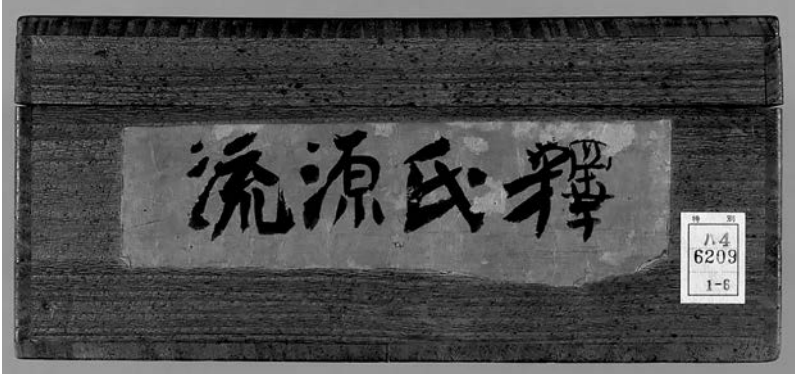 釋氏源流
特別
ハ4
6209
1-6